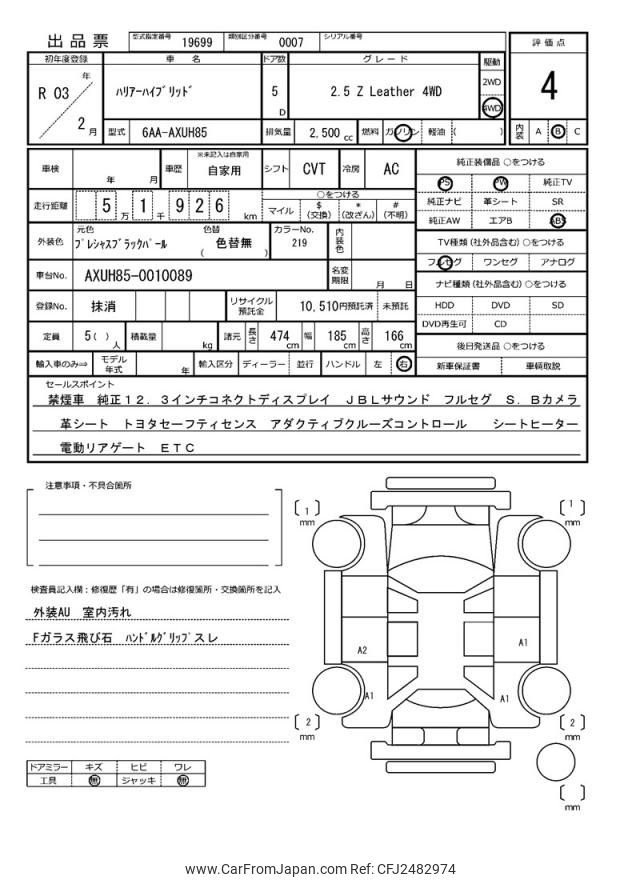 出品票 型式指定番号 19699 類別区分番号 0007 シリアル番号
評価点
4
内装 A B C
初年度登録 車名 ドア数 グレード 駆動
R 03 年 2 月 ハリアーハイブリッド 5 D 2.5 Z Leather 4WD 2WD 4WD
型式 6AA-AXUH85 排気量 2,500 cc 燃料 ガソリン 軽油 ( )
車検 年 月 車歴 ※未記入は自家用 自家用 シフト CVT 冷房 AC
走行距離 5 万 1 千 9 2 6 km ○をつける
マイル $(交換) *(改ざん) #(不明)
外装色 元色 プレシャスブラックパール 色替 ( 色替無 ) カラーNo. 219 内装色
車台No. AXUH85-0010089 名変期限 月 日
登録No. 抹消 リサイクル預託金 10,510円預託済 未預託
定員 5( )人 積載量 kg 諸元 長さ 474 cm 幅 185 cm 高さ 166 cm
輸入車のみ⇨ モデル年式 年 輸入区分 ディーラー 並行 ハンドル 左 右
純正装備品 ○をつける
PS PW 純正TV
純正ナビ 革シート SR
純正AW エアB ABS
TV種類 (社外品含む) ○をつける
フルセグ ワンセグ アナログ
ナビ種類 (社外品含む) ○をつける
HDD DVD SD
DVD再生可 CD
後日発送品 ○をつける
新車保証書 車輌取説
セールスポイント
禁煙車 純正12.3インチコネクトディスプレイ JBLサウンド フルセグ S.Bカメラ
革シート トヨタセーフティセンス アダクティブクルーズコントロール シートヒーター
電動リアゲート ETC
注意事項・不具合箇所
検査員記入欄:修復歴「有」の場合は修復箇所・交換箇所を記入
外装AU 室内汚れ
Fガラス飛び石 ハンドルグリップスレ
ドアミラー キズ ヒビ ワレ
工具 無 ジャッキ 無
〔1〕 mm
〔1〕 mm
A2
A1
A1
A1
〔2〕 mm
〔2〕 mm
〔 〕 mm
www.CarFromJapan.com Ref: CFJ2482974